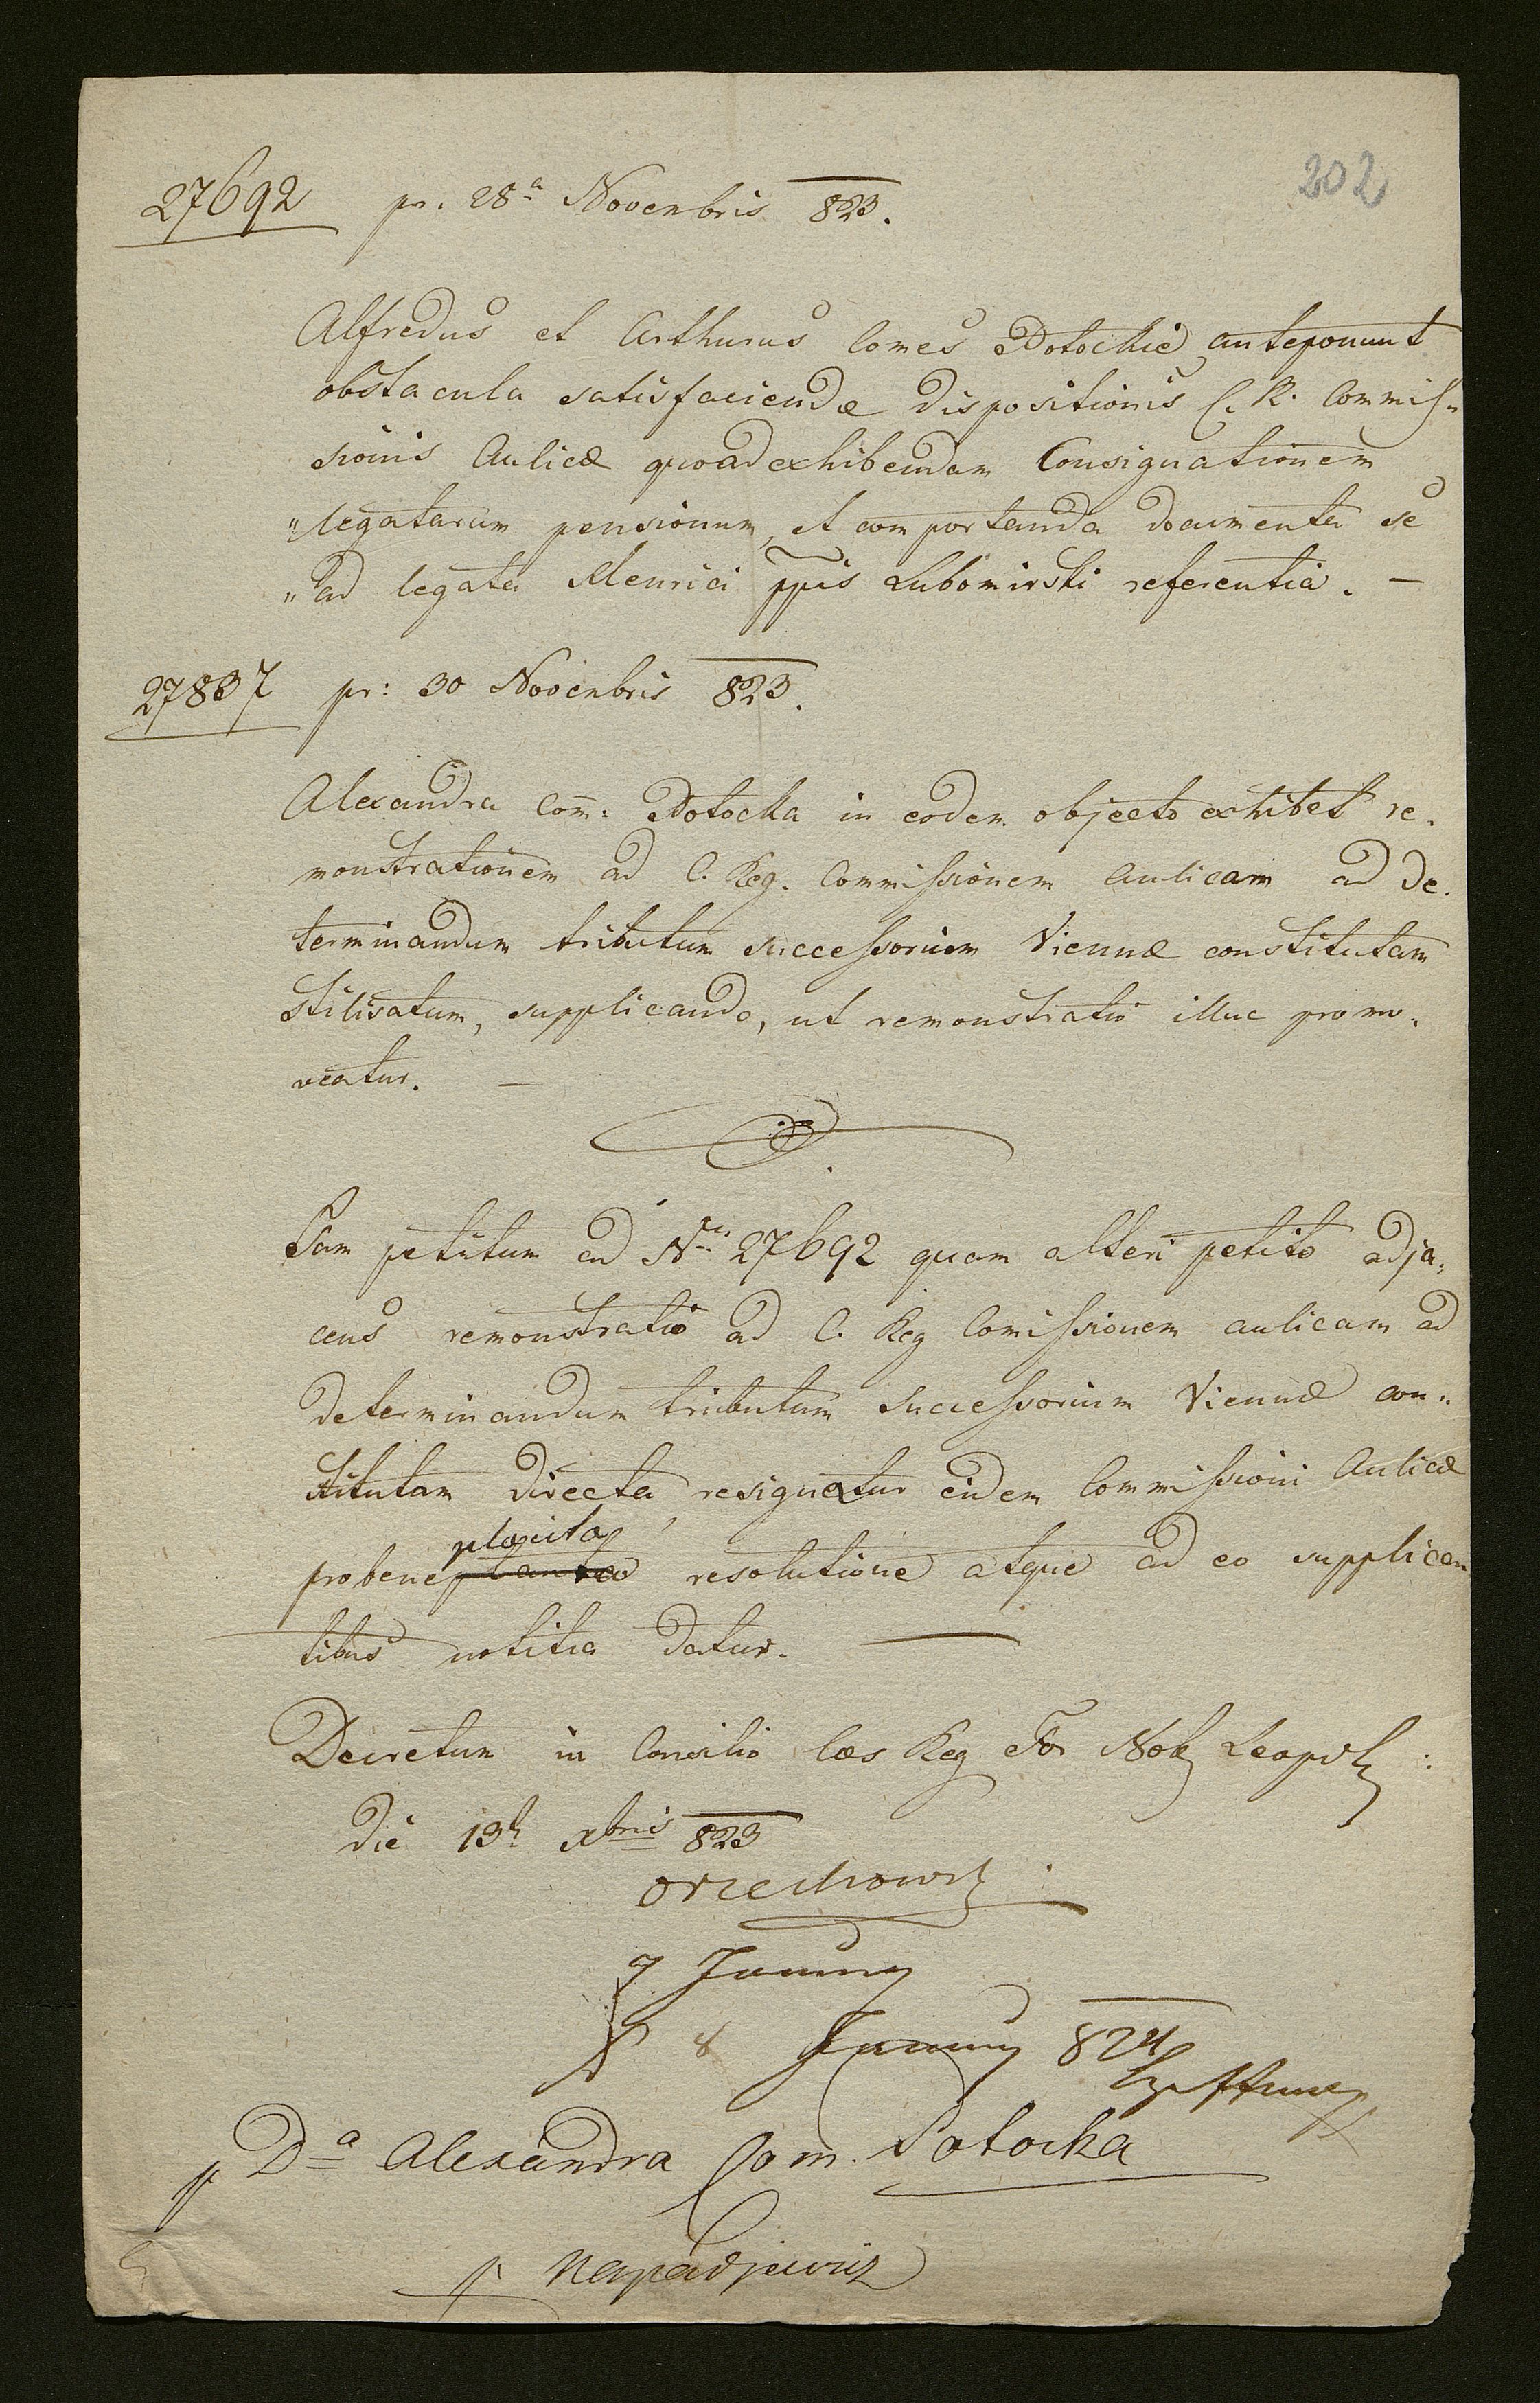 202
27692 pr. 28ª Novenbris 823.
Alfredus et Arthurus Comes Potockie anteponunt
obstacula satisfaciendæ dispositionis C. R. Commis„
sionis Aulicæ quoad exhibendam Consignationem
„legatarum pensionum, et comportanda documenta se
„ad legata Henrici ppis Lubomirski referentia. —
27837 pr: 30 Novenbris 823.
Alexandra Com̄: Potocka in eodem objecto exhibet re„
monstrationem ad C. Reg. Commissionem aulicam ad de„
terminandum tributum successorium Viennæ constitutam
stilisatum, supplicando, ut remonstratio illuc promo„
veatur. —
Tam petitum ad Nrum 27692 quam alteri petito adja„
cens remonstratio ad C. Reg Comissionem aulicam ad
determinandum tributum successorium Viennæ con„
stitutam directa, resignatur eidem Commissioni Aulicæ
placita
pro bene resolutione atque ad eo supplican
tibus notitia datur. —
Decretum in Consilio Cæs Reg For Nob Leopol:
die 13t Xbris 823
Orzechowski
7 Januar
8 Januar 824
Dª Alexandra Com. Potocka